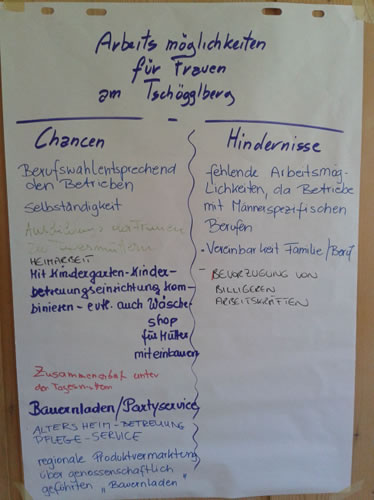 Arbeits möglichkeiten
für Frauen
am Tschögglberg
Chancen
Berufswahlentsprechend
den Betrieben
Selbständigkeit
Ausbildung von Frauen
zu Tagesmüttern
HEIMARBEIT
Mit Kindergarten-Kinder-
betreuungseinrichtung kom-
binieren - evtl. auch Wäsche
shop
für Mütter
miteinbauen
Zusammenschluß unter
den Tagesmüttern
Bauernladen/Partyservice
ALTERSHEIM-BETREUUNG
PFLEGE-SERVICE
regionale Produktvermarktung
über genossenschaftlich
geführten "Bauernladen"
Hindernisse
fehlende Arbeitsmög-
lichkeiten, da Betriebe
mit Männerspezifischen
Berufen
• Vereinbarkeit Familie/Beruf
- BEVORZUGUNG VON
BILLIGEREN
ARBEITSKRÄFTEN